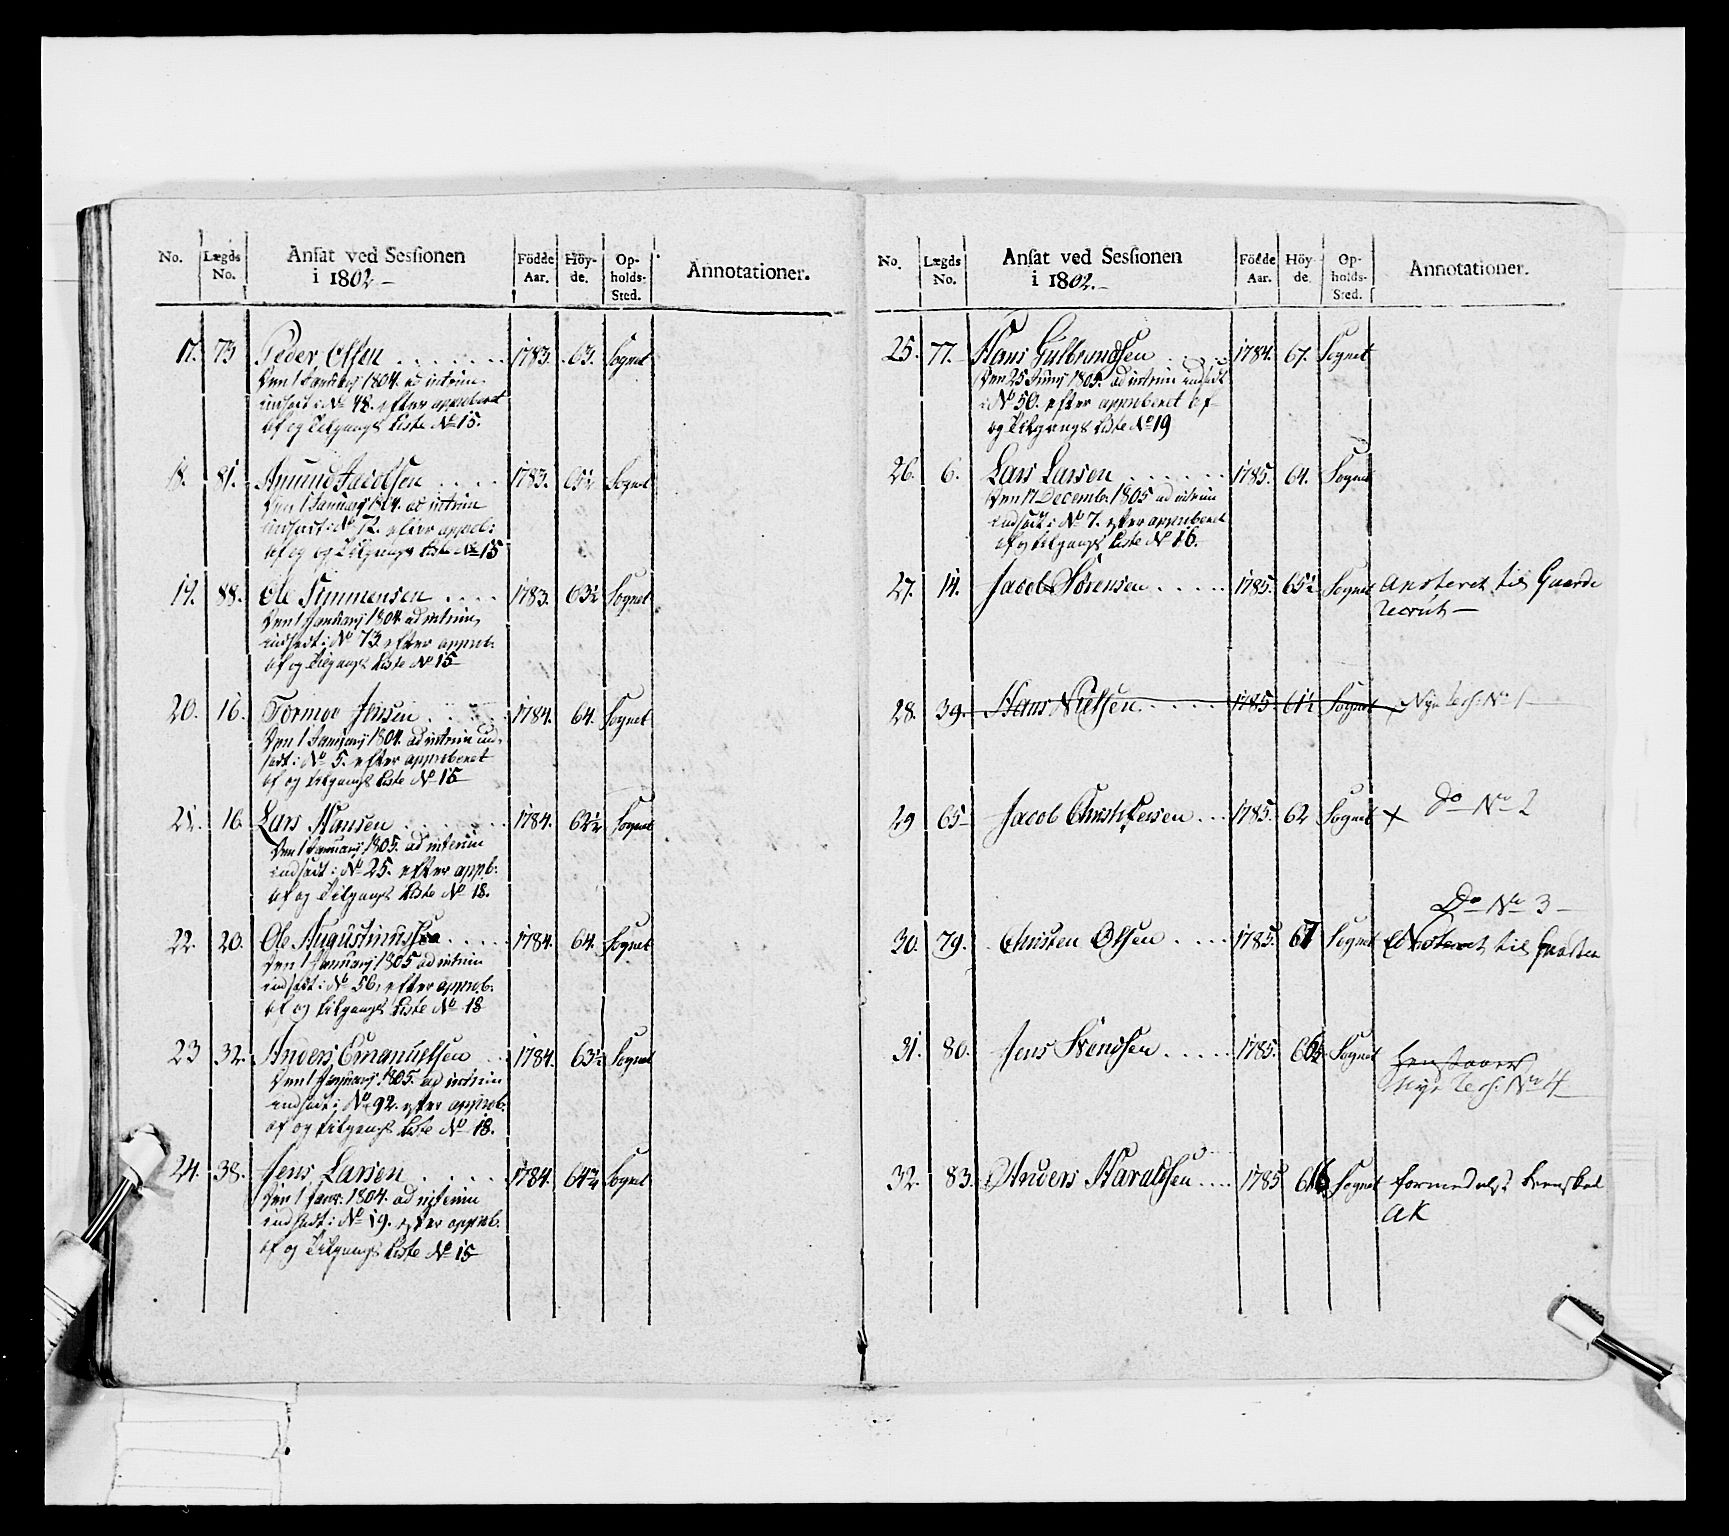 No. Lægds No. Ansat ved Sessionen i 1802 - Födde Aar. Höy-de. Op-holds-Sted. Annotationer.
17. 73 Peder Olsen . . . . . . . 1783. 63. Sognet
Den 1 Januarj 1804. ad interim
indsadt i No 48. efter approberet
af og Tilgangs Liste No 15.
18. 81. Amund Jacobsen . . . . 1783. 65½ Sognet
Den 1 Januarj 1804. ad interim
indsadt i No 72. efter approb:
af og Tilgangs Liste No 15
19. 88. Ole Simmensen . . . . 1783. 63½ Sognet
Den 1 Januarj 1804 ad interim,
indsadt i No 73 efter approb.
af og Tilgangs Liste No 15
20. 16. Tormoe Jensen . . . . . 1784. 64. Sognet
Den 1 Januarj 1804. ad interim ind,
sadt i No 5. efter approberet
af og tilgangs Liste No 15
21. 16 Lars Hansen . . . . . . 1784. 62½ Sognet
Den 1 Januarj 1805. ad interim
indsadt i No 25. efter approb:
af og Tilgangs Liste No 18.
22. 20. Ole Augustinussen . . . . . 1784. 64. Sognet
Den 1 Januarj 1805 ad interim
indsadt i No 56, efter approb.
af og tilgangs Liste No 18
23 32. Anders Emanuelsen . . 1784. 63½ Sognet
Den 1 Januarj 1805. ad interim
indsadt i No 92. efter approb.
af og tilgangs Liste No 18.
24. 38. Jens Larsen . . . . . 1784. 64½ Sognet
Den 1 Janr. 1804. ad interim
indsadt i No 19. efter approb.
af og Tilgangs Liste No 15
No. Lægds No. Ansat ved Sessionen i 1802.- Födde Aar. Höy-de. Op-holds-Sted. Annotationer.
25. 77. Hans Gulbrandsen . . . . 1784. 67. Sognet
Den 25 Junij 1805. ad interim indsadt
i No 50. efter approberet af
og Tilgangs Liste No 19
26. 6. Lars Larsen . . . . . . 1785. 64. Sognet
Den 17 Decembr: 1805 ad interim
indsadt i No 7. efter approberet
af og tilgangs Liste No 16.
27. 14. Jacob Sørensen . . . . . 1785. 65½ Sognet Ansteret til Guarde
recrut -
28. 39. Hans Nielsen . . . . . 1785. 61½ Sognet Nye No 1
29 65 Jacob Christophersen . . . 1785. 62 Sognet x Do No 2
Do No 3 -
30. 79. Christen Olsen . . . . 1785. 67 Sognet Ansteret til
31. 80. Jens Svendsen . . . . . 1785. 66½ Sognet
Nye No 4
32. 83. Anders Haraldsen . . . . 1785 66 Sognet formedelst
AK